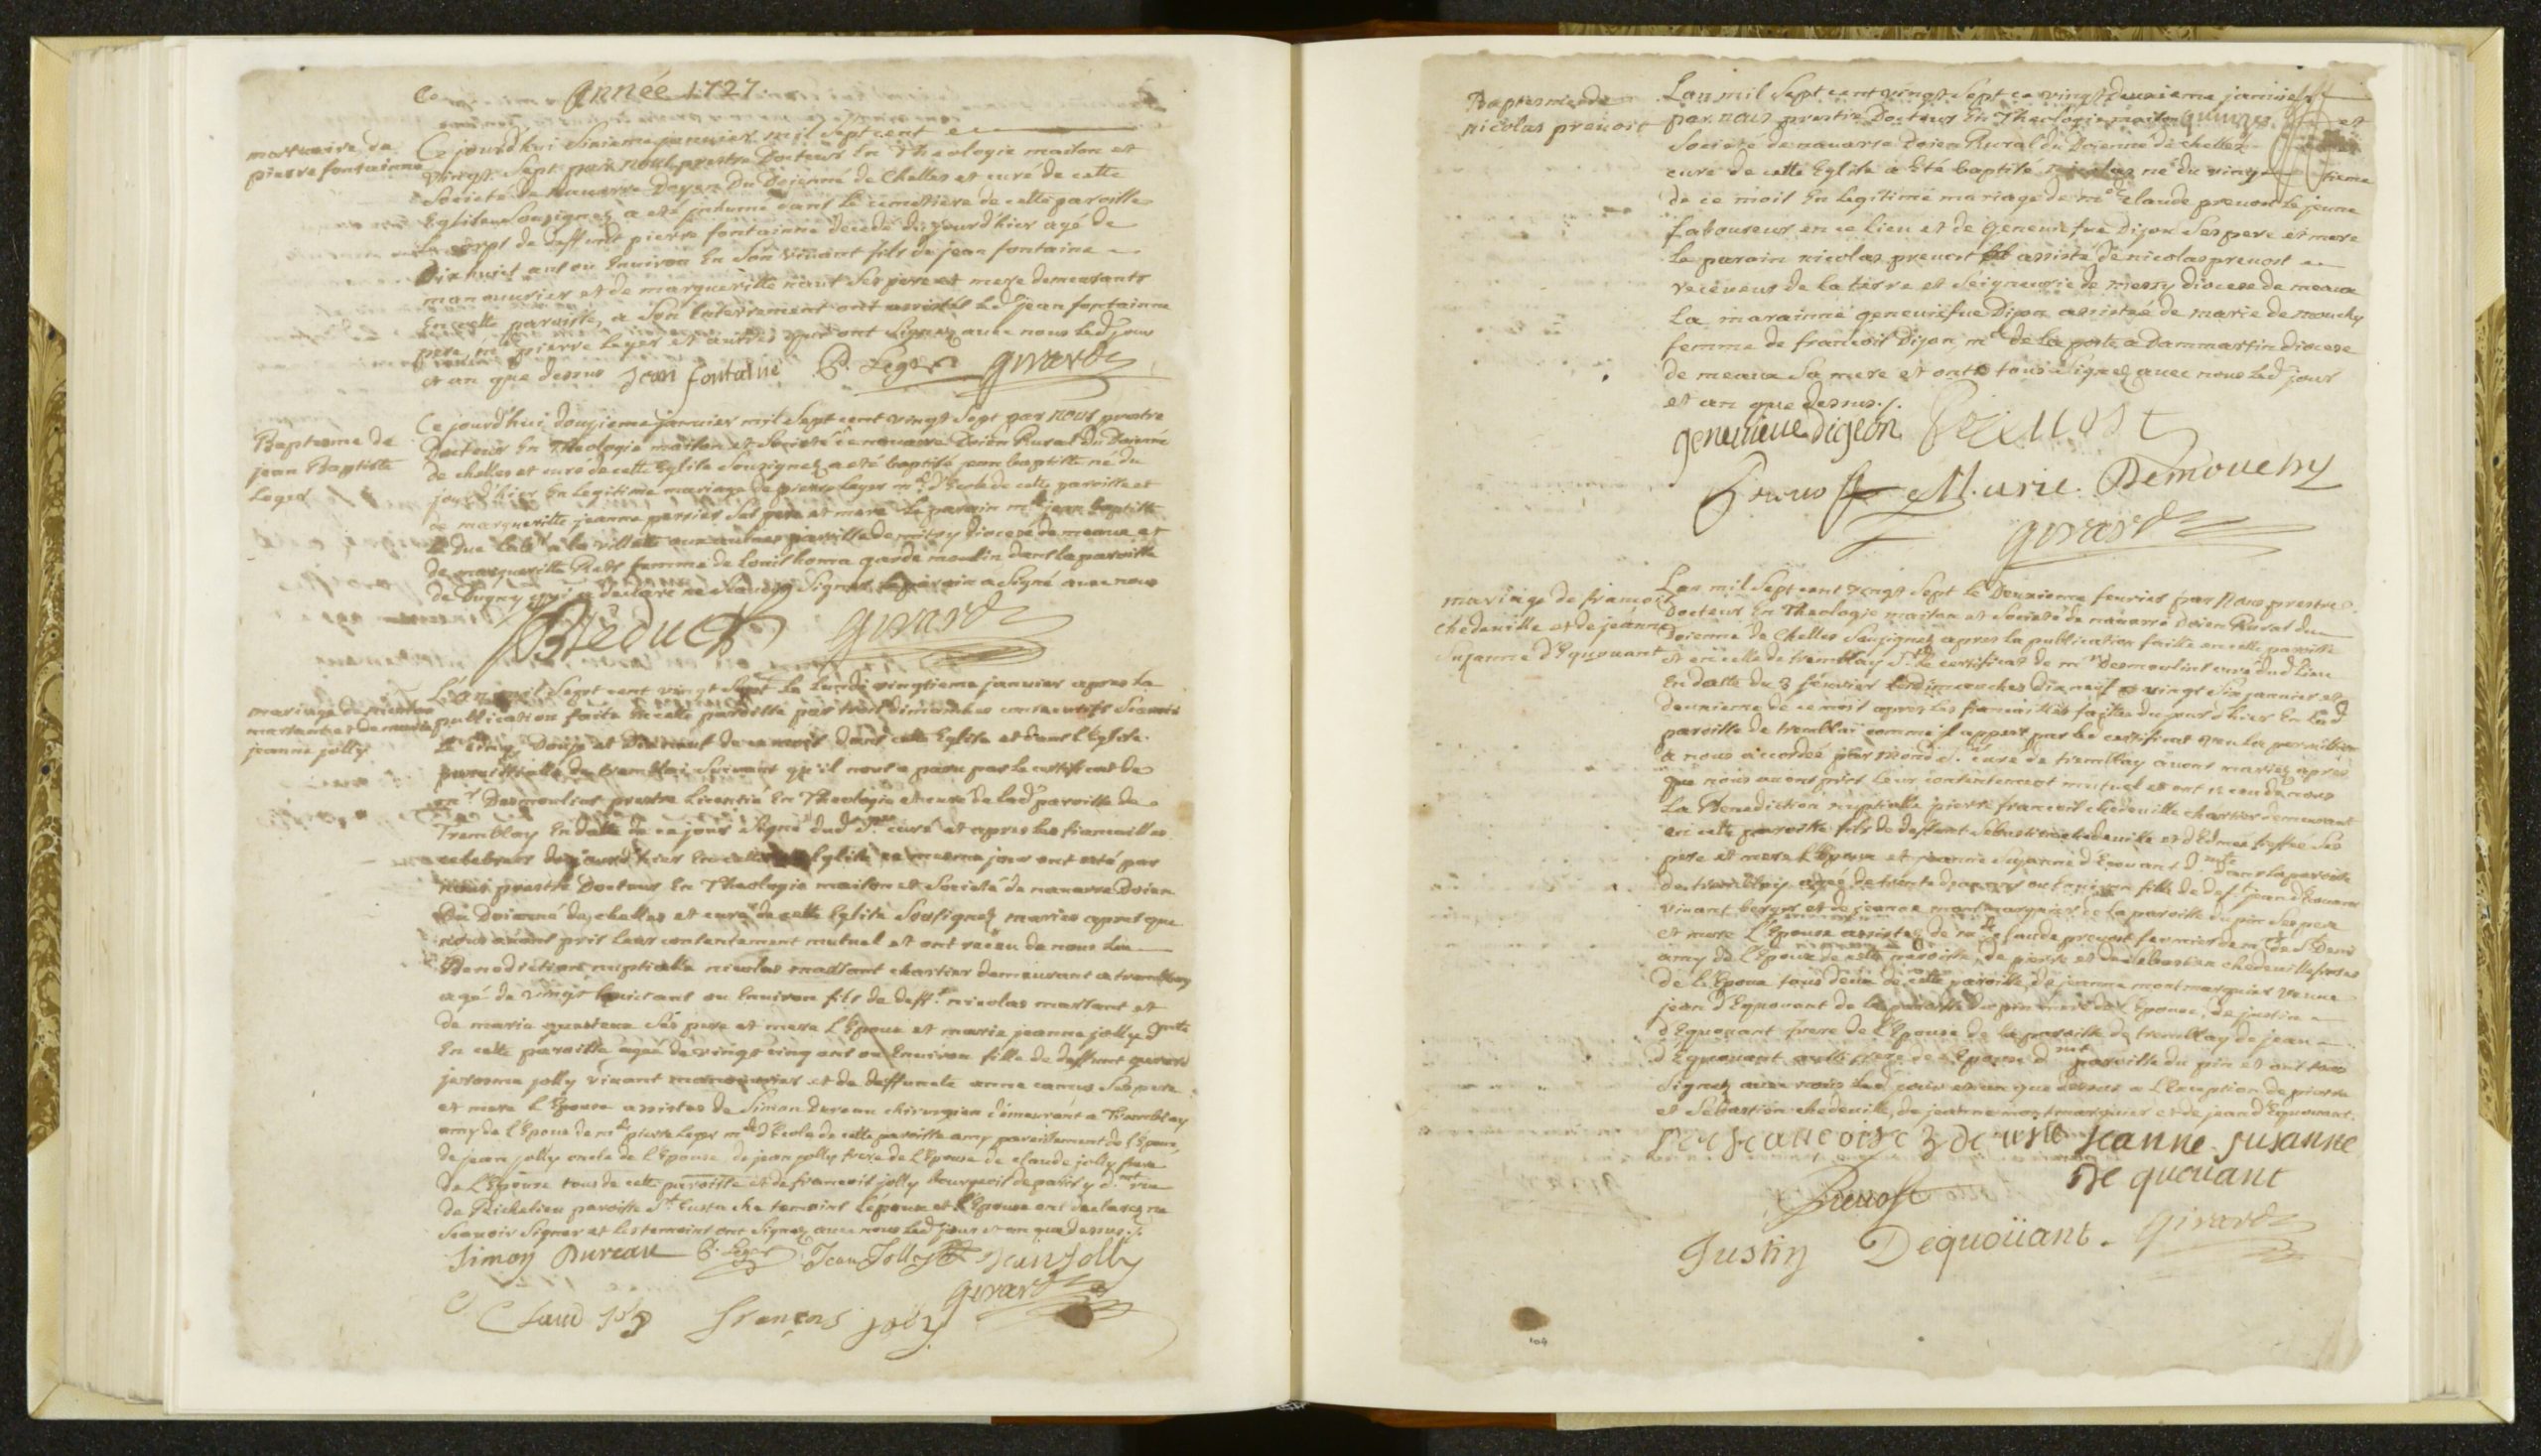 Année 1727.
mortuaire de
pierre fontainne
Ce jourd'hui Sixieme janvier mil Sept cent
vingt Sept par nous prestre Docteur En Theologie maison et
Societé de navarre Doyen Du Doienné de Chelles et curé de cette
Eglise Sousignez a eté inhumé dans le cimetiere de cette paroisse
Le corps de deffunt pierre fontainne decedé du jourd'hier agé de
Dix huit ans ou Environ En Son vivant fils de jean fontaine
manouvrier et de margueritte nant Ses pere et mere demeurants
En cette paroisse, a Son Enterrement ont assistés Led jean fontainne
pere, me pierre leger et autres qui ont Signez avec nous Led jour
et an que dessus Jean fontaine P. Leger girard
Baptesme de
jean Baptiste
Leger
Ce jourd'hui douzieme janvier mil Sept cent vingt Sept par nous prestre
Docteur En Theologie maison et Societé de navarre Doien Rural Du Doienné
de chelles et curé de cette Eglise Sousignez a eté baptisé jean baptiste né du
jourd'hier En Legitime mariage de pierre leger me d'Ecole de cette paroisse et
de margueritte jeanne perrier Ses pere et mere Le parain me jean baptiste
le duc a la villette aux aulnes paroisse de mitry diocese de meaux et
de margueritte femme de Louis homa garde moulin dans la paroisse
de Dugny qui a declaré ne Scavoir Signer Le parain a Signé avec nous
JBleduc girard
mariage de nicolas
massant et de marie
jeanne jolly
L'an mil Sept cent vingt Sept Le Lundi vingtieme janvier apres la
publication faite En cette paroisse par trois dimanches consecutifs Scavoir
Le cinq, Douze et Dix neuf de ce mois dans cette Eglise et dans l'Eglise
paroissialle de tremblai Suivant qu'il nous a paru par le certificat de
mr Desmoulins prestre Licentié En Theologie et curé de lad paroisse de
Tremblay En datte de ce jour Signé dud Sr curé et apres les fiancailles
celebrées du jourd'hier En cette Eglise ce mesme jour ont eté par
nous prestre Docteur En Theologie maison et Societé de navarre Doien
Du Doienné de chelles et curé de cette Eglise Sousignez mariés apres que
nous avons pris leur consentement mutuel et ont receu de nous La
Benediction nuptialle nicolas massant chartier demeurant a tremblay
agé de vingt huit ans ou Environ fils de defft nicolas massant et
de marie Ses pere et mere L'Epoux et marie jeanne jolly dmte
En cette paroisse agée de vingt cinq ans ou Environ fille de deffunt
jerosme jolly vivant manouvrier et de deffuncte anne camus Ses pere
et mere L'Epouse assistés de Simon Dureau chirurgien demeurant a Tremblay
amy de l'Epoux de me pierre leger me d'Ecole de cette paroisse amy pareillement de l'Epoux,
de jean jolly oncle de l'Epouse de jean jolly frere de L'Epouse de claude jolly frere
de L'Epouse tous de cette paroisse et de francois jolly bourgeois de paris y dmt rue
de Richelieu paroisse St Eustache temoins L'époux et L'Epouse ont declaré ne
Scavoir Signer et les temoins ont Signez avec nous Led jour et an que dessus
Simon Dureau P. Leger Jean Jolly Jean Jolly
girard
Claud françois joly
Baptesme de
nicolas prevost
L'an mil Sept cent vingt Sept ce vingt deuxieme janvier
par nous prestre Docteur En Theologie maison et
Societé de navarre Doien Rural du Doienné de chelles
curé de cette Eglise a Eté baptisé nicolas né du vingt
de ce mois En Legitime mariage de me claude prevost le jeune
Laboureur en ce lieu et de Geneviefve Dijon Ses pere et mere
Le parain nicolas prevost assisté de nicolas prevost
receveur de la terre et Seigneurie de messy diocese de meaux
La marainne geneviefve Dijon assistée de marie de mouchy
femme de francois Dijon, me de la poste a Dammartin diocese
de meaux Sa mere et ont tous Signez avec nous Led jour
et an que dessus./.
genevieve digeon Prevost
Prevost Marie Demouchy
girard
mariage de francois
chedeville et de jeanne
Suzanne d'Equouant
L'an mil Sept cent vingt Sept le Deuxieme fevrier par Nous prestre
Docteur En Theologie maison et Societé de navarre Doien Rural du
Doienné de Chelles Sousignez apres la publication faitte en cette paroisse
et en celle de tremblay certificat de mr Desmoulins curé dud Lieu
En datte du 3 fevrier Les dimanches dix neuf vingt Six janvier et
deuxieme de ce mois apres les fiancailles faittes du jourd'hier En Lad
paroisse de tremblai comme il appert par le certificat et en la permission
a nous accordée par curé de tremblay avons mariez apres
que nous avons pris Leur consentement mutuel et ont receu de nous
La Benediction nuptialle pierre francois chedeville chartier demeurant
en cette paroisse fils de deffunt Sebastien chedeville et d'Edmee Ses
pere et mere L'Epoux et jeanne Suzanne d'Equouant dmte dans la paroisse
de tremblay agée de trente deux ans ou Environ fille de deft jean d'Equouant
vivant berger et de jeanne montmarquier de la paroisse du pin Ses pere
et mere L'Epouse assistez de me claude prevost fermier de St Denis
amy de l'Epoux de cette paroisse, de pierre et de Sebastien chedeville freres
de L'Epoux tous deux de cette paroisse, de jeanne montmarquier veuve
jean d'Equouant de la paroisse du pin mere de l'Epouse, de justin
d'Equouant frere de L'Epouse de la paroisse de tremblay de jean
d'Equouant frere de l'Epouse dmt paroisse du pin et ont tous
Signez avec nous Led jour et an que dessus a L'Exception de pierre
et Sebastien chedeville, de jeanne montmarquier et de jean d'Equouant.
jeanne Susanne
De quouant
Prevost
Justin Dequoüant. girard